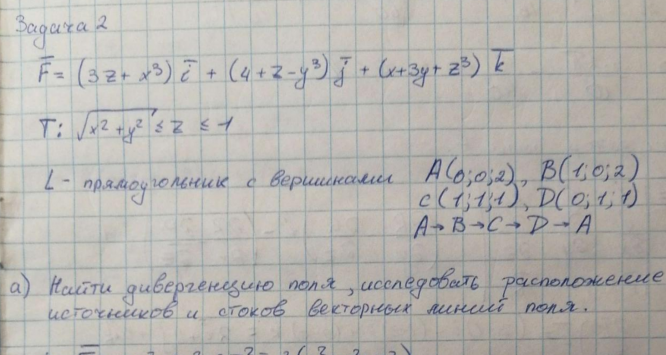 Задача 2
F̄ = (3z + x³) ī + (4 + z - y³) j̄ + (x + 3y + z³) k̄
T: √(x² + y²) ≤ z ≤ 1
L - прямоугольник с вершинами A(0;0;2), B(1;0;2)
C(1;1;1), D(0;1;1)
A→B→C→D→A
а) Найти дивергенцию поля, исследовать расположение
источников и стоков векторных линий поля.